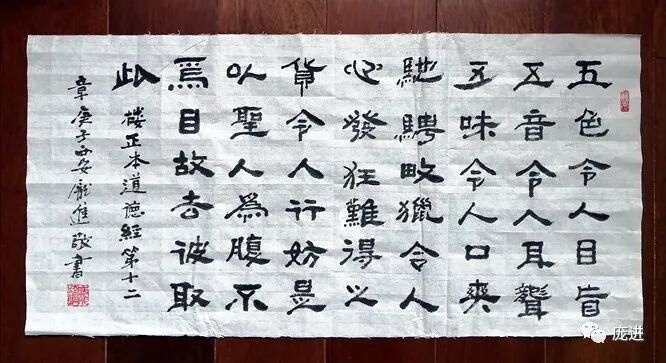 五色令人目盲
五音令人耳聾
五味令人口爽
馳騁畋獵令人
心發狂難得之
貨令人行妨是
以聖人爲腹不
爲目故去彼取
此
楼正本道德經第十二
章庚子西安龐進敬書
庞进